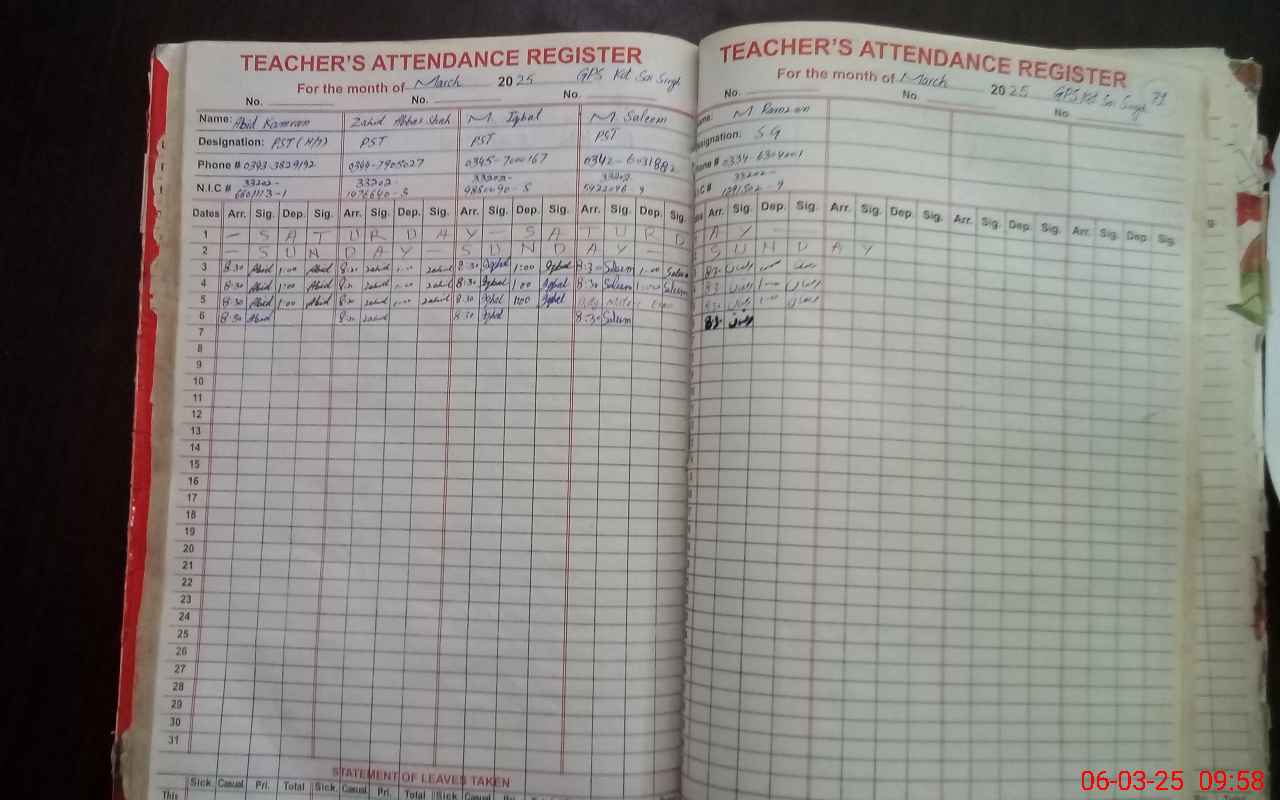 TEACHER'S ATTENDANCE REGISTER
For the month of March 2025 GPS Kot Sai Singh
No. No. No.
Name: Abid Kamran Zahid Abbas Shah M. Iqbal M. Saleem
Designation: PST (H/T) PST PST PST
Phone # 0343-3829192 0344-7905027 0345-7000167 0342-6031882
N.I.C # 33202- 33202 33202- 33202
Dates Arr. Sig. Dep. Sig. Arr. Sig. Dep. Sig. Arr. Sig. Dep. Sig. Arr. Sig. Dep. Sig.
1 - S A T U R D A Y - S A T U R D
2 - S U N D A Y - S U N D A Y -
3 8:30 Abid 1:00 Abid 8:30 zahid 1:00 zahid 8:30 Iqbal 1:00 Iqbal 8:30 Saleem 1:00 Saleem
4 8:30 Abid 1:00 Abid 8:30 zahid 1:00 zahid 8:30 Iqbal 1:00 Iqbal 8:30 Saleem 1:00 Saleem
5 8:30 Abid 1:00 Abid 8:30 zahid 1:00 zahid 8:30 Iqbal 1:00 Iqbal
6 8:30 Abid 8:30 zahid 8:30 Iqbal 8:30 Saleem
7
8
9
10
11
12
13
14
15
16
17
18
19
20
21
22
23
24
25
26
27
28
29
30
31
STATEMENT OF LEAVES TAKEN
Sick. Casual Pri. Total Sick. Casual Pri. Total Sick. Casual Pri.
This
TEACHER'S ATTENDANCE REGISTER
For the month of March 2025 GPS Kot Sai Singh 71
No. No. No
M Ramzan
esignation: S G
hone # 0334-6304201
33202-
Arr. Sig. Dep. Sig. Arr. Sig. Dep. Sig. Arr. Sig. Dep. Sig. Arr. Sig. Dep. Sig.
A Y -
S U N D A Y
8:30 رمضان 1:00 رمضان
8:30 رمضان 1:00 رمضان
8:30 رمضان 1:00 رمضان
8:30 رمضان
06-03-25 09:58